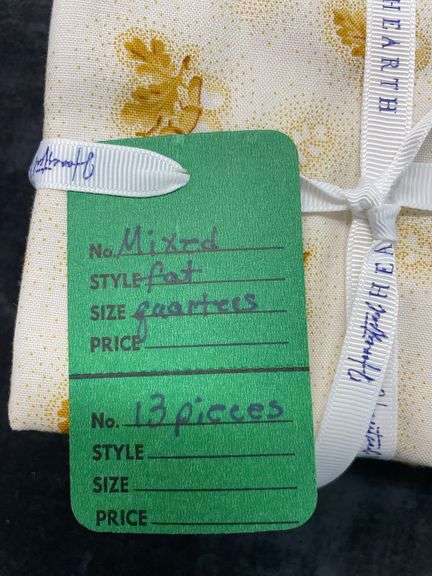 HEARTH
No. Mixed
STYLE fat
SIZE quarters
PRICE
No. 13 pieces
STYLE
SIZE
PRICE
HEN